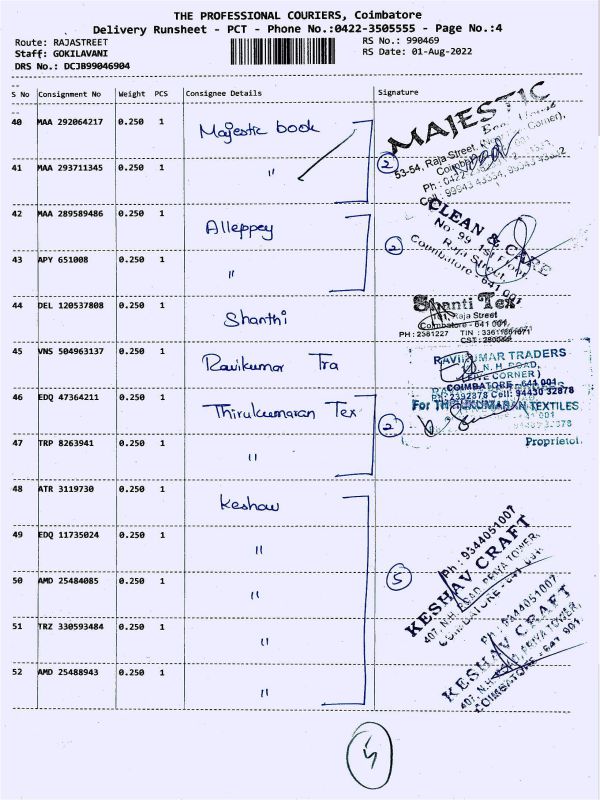 THE PROFESSIONAL COURIERS, Coimbatore
Delivery Runsheet - PCT - Phone No.:0422-3505555 - Page No.:4
Route: RAJASTREET
RS No.: 990469
Staff: GOKILAVANI
RS Date: 01-Aug-2022
DRS No.: DCJB99046904
S No Consignment No Weight PCS Consignee Details Signature
40 MAA 292064217 0.250 1 Majestic book
MAJESTIC
Book House
53-54, Raja Street,
41 MAA 293711345 0.250 1 "
2
42 MAA 289589486 0.250 1 Alleppey
CLEAN & CARE
No: 99 1st Floor,
Raja Street,
Coimbatore - 641 001
43 APY 651008 0.250 1 "
2
44 DEL 120537808 0.250 1 Shanthi
Shanti Tex
Raja Street
Coimbatore - 641 001.
PH : 2381227 TIN :
45 VNS 504963137 0.250 1 Ravikumar Tra
RAVIKUMAR TRADERS
N. H. ROAD,
(FIVE CORNER)
COIMBATORE - 641 001
PH: 2392878 Cell: 94430 32878
46 EDQ 47364211 0.250 1 Thirukumaran Tex
For THIRUKUMARAN TEXTILES
2
47 TRP 8263941 0.250 1 "
Proprietor.
48 ATR 3119730 0.250 1 Keshav
49 EDQ 11735024 0.250 1 "
Ph : 9344051007
KESHAV CRAFT
407, N.H. ROAD, PRIYA TOWER,
COIMBATORE - 641 001.
50 AMD 25484085 0.250 1 "
5
51 TRZ 330593484 0.250 1 "
Ph : 9344051007
KESHAV CRAFT
407, N.H. ROAD, PRIYA TOWER,
COIMBATORE - 641 001.
52 AMD 25488943 0.250 1 "